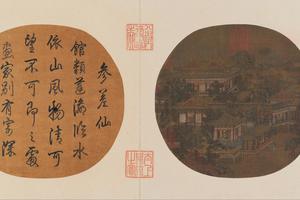 參差仙
館類蓬瀛臨水
依山風物清可
望不可即之處
畫家別有寄深